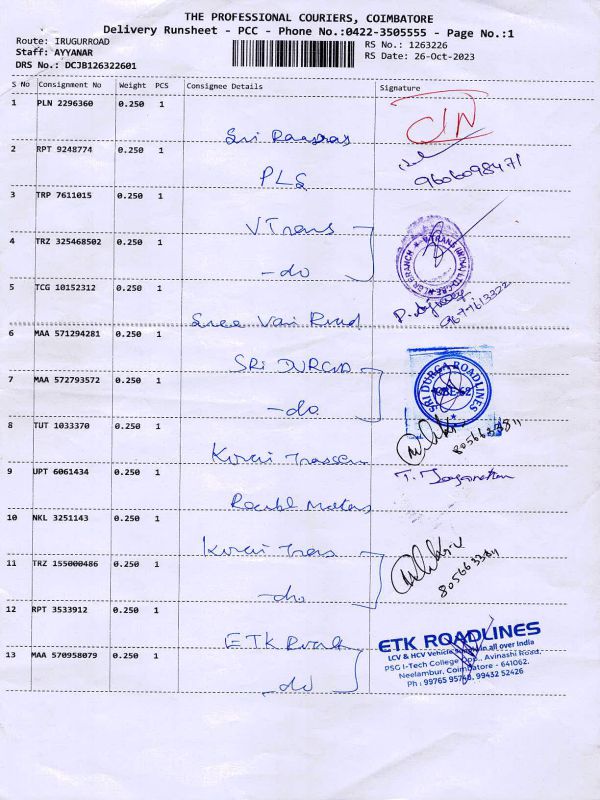 THE PROFESSIONAL COURIERS, COIMBATORE
Delivery Runsheet - PCC - Phone No.:0422-3505555 - Page No.:1
Route: IRUGURROAD
RS No.: 1263226
Staff: AYYANAR
RS Date: 26-Oct-2023
DRS No.: DCJB126322601
S No Consignment No Weight PCS Consignee Details Signature
1 PLN 2296360 0.250 1
Sri
2 RPT 9248774 0.250 1
PLS 9606098471
3 TRP 7611015 0.250 1
V Trans
4 TRZ 325468502 0.250 1
-do
5 TCG 10152312 0.250 1
Sree Vari Road
6 MAA 571294281 0.250 1
SRi DURGA
7 MAA 572793572 0.250 1
-do
SRI DURGA ROADLINES
CBE-62
8 TUT 1033370 0.250 1
8056633811
9 UPT 6061434 0.250 1
10 NKL 3251143 0.250 1
11 TRZ 155000486 0.250 1
-do
8056633811
12 RPT 3533912 0.250 1
ETK
13 MAA 570958079 0.250 1
-do
ETK ROADLINES
LCV & HCV Vehicle in all over India
PSG I-Tech College Opp., Avinashi Road,
Neelambur, Coimbatore - 641062.
Ph : 99765 95748, 99432 52426